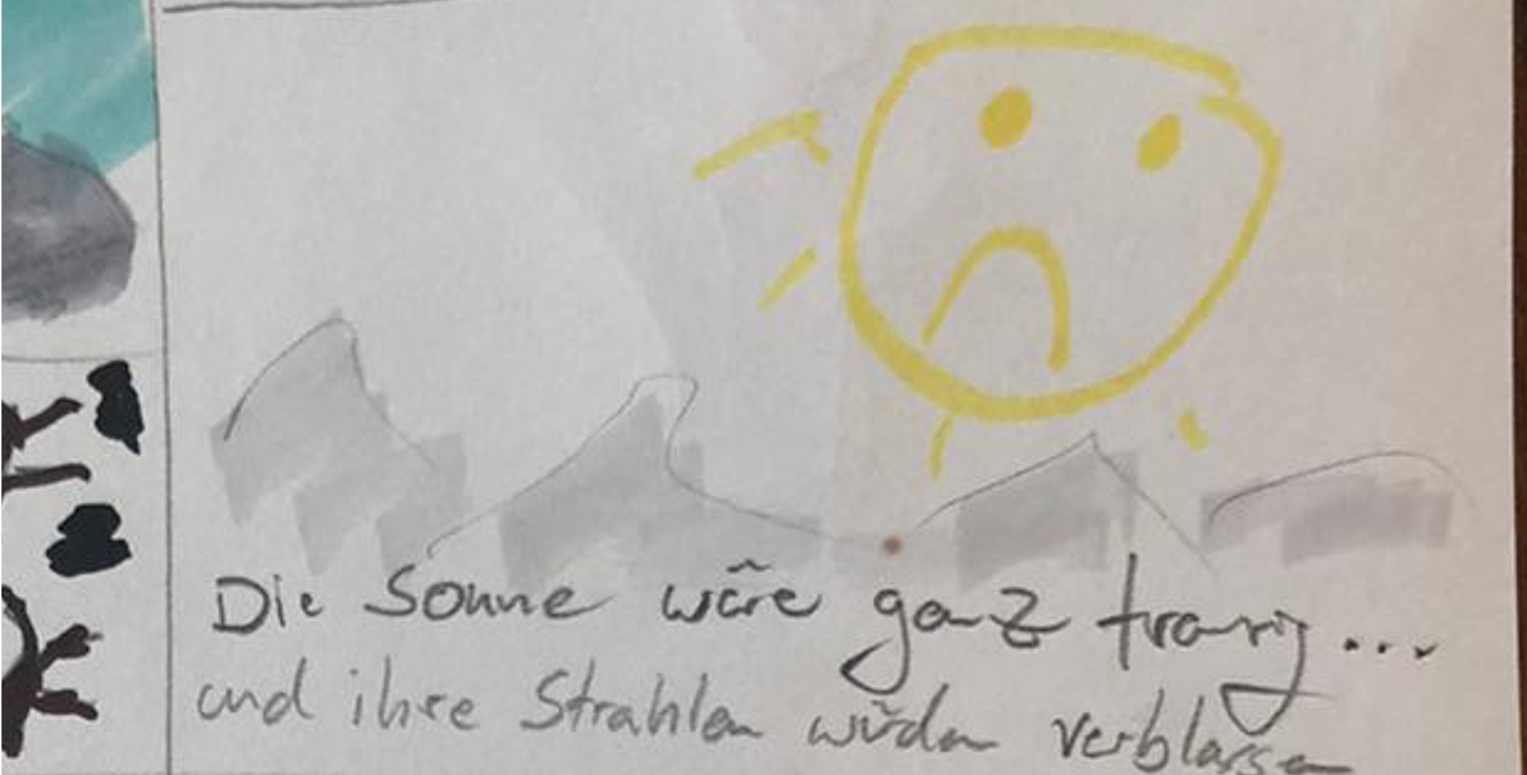 Die Sonne wäre ganz traurig...
und ihre Strahlen würden verblassen